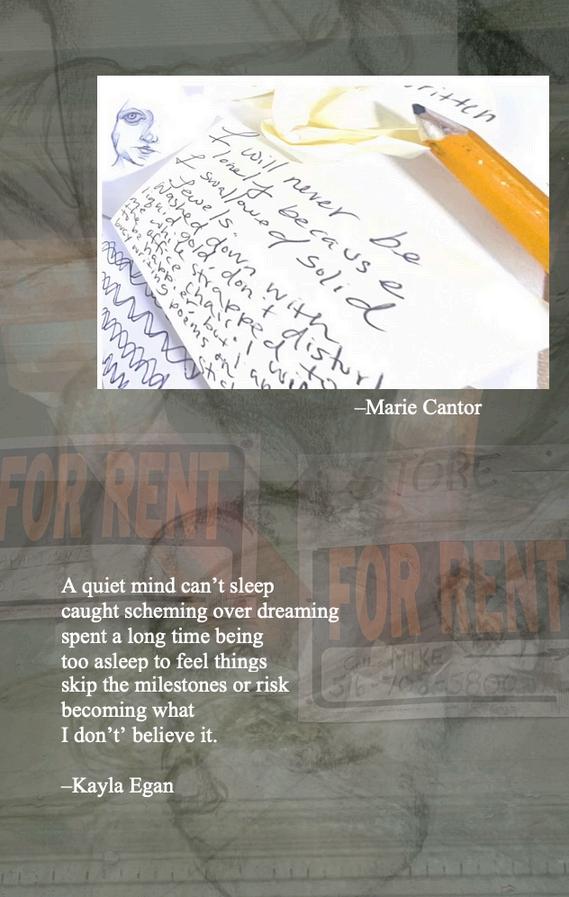 written
I will never be
lonely because
I swallowed solid
Jewels.
Washed down with
liquid gold, don't disturb
strapped to
office chair, but I will
poems on
–Marie Cantor
FOR RENT
STORE
FOR RENT
CALL MIKE
A quiet mind can’t sleep
caught scheming over dreaming
spent a long time being
too asleep to feel things
skip the milestones or risk
becoming what
I don’t’ believe it.
–Kayla Egan